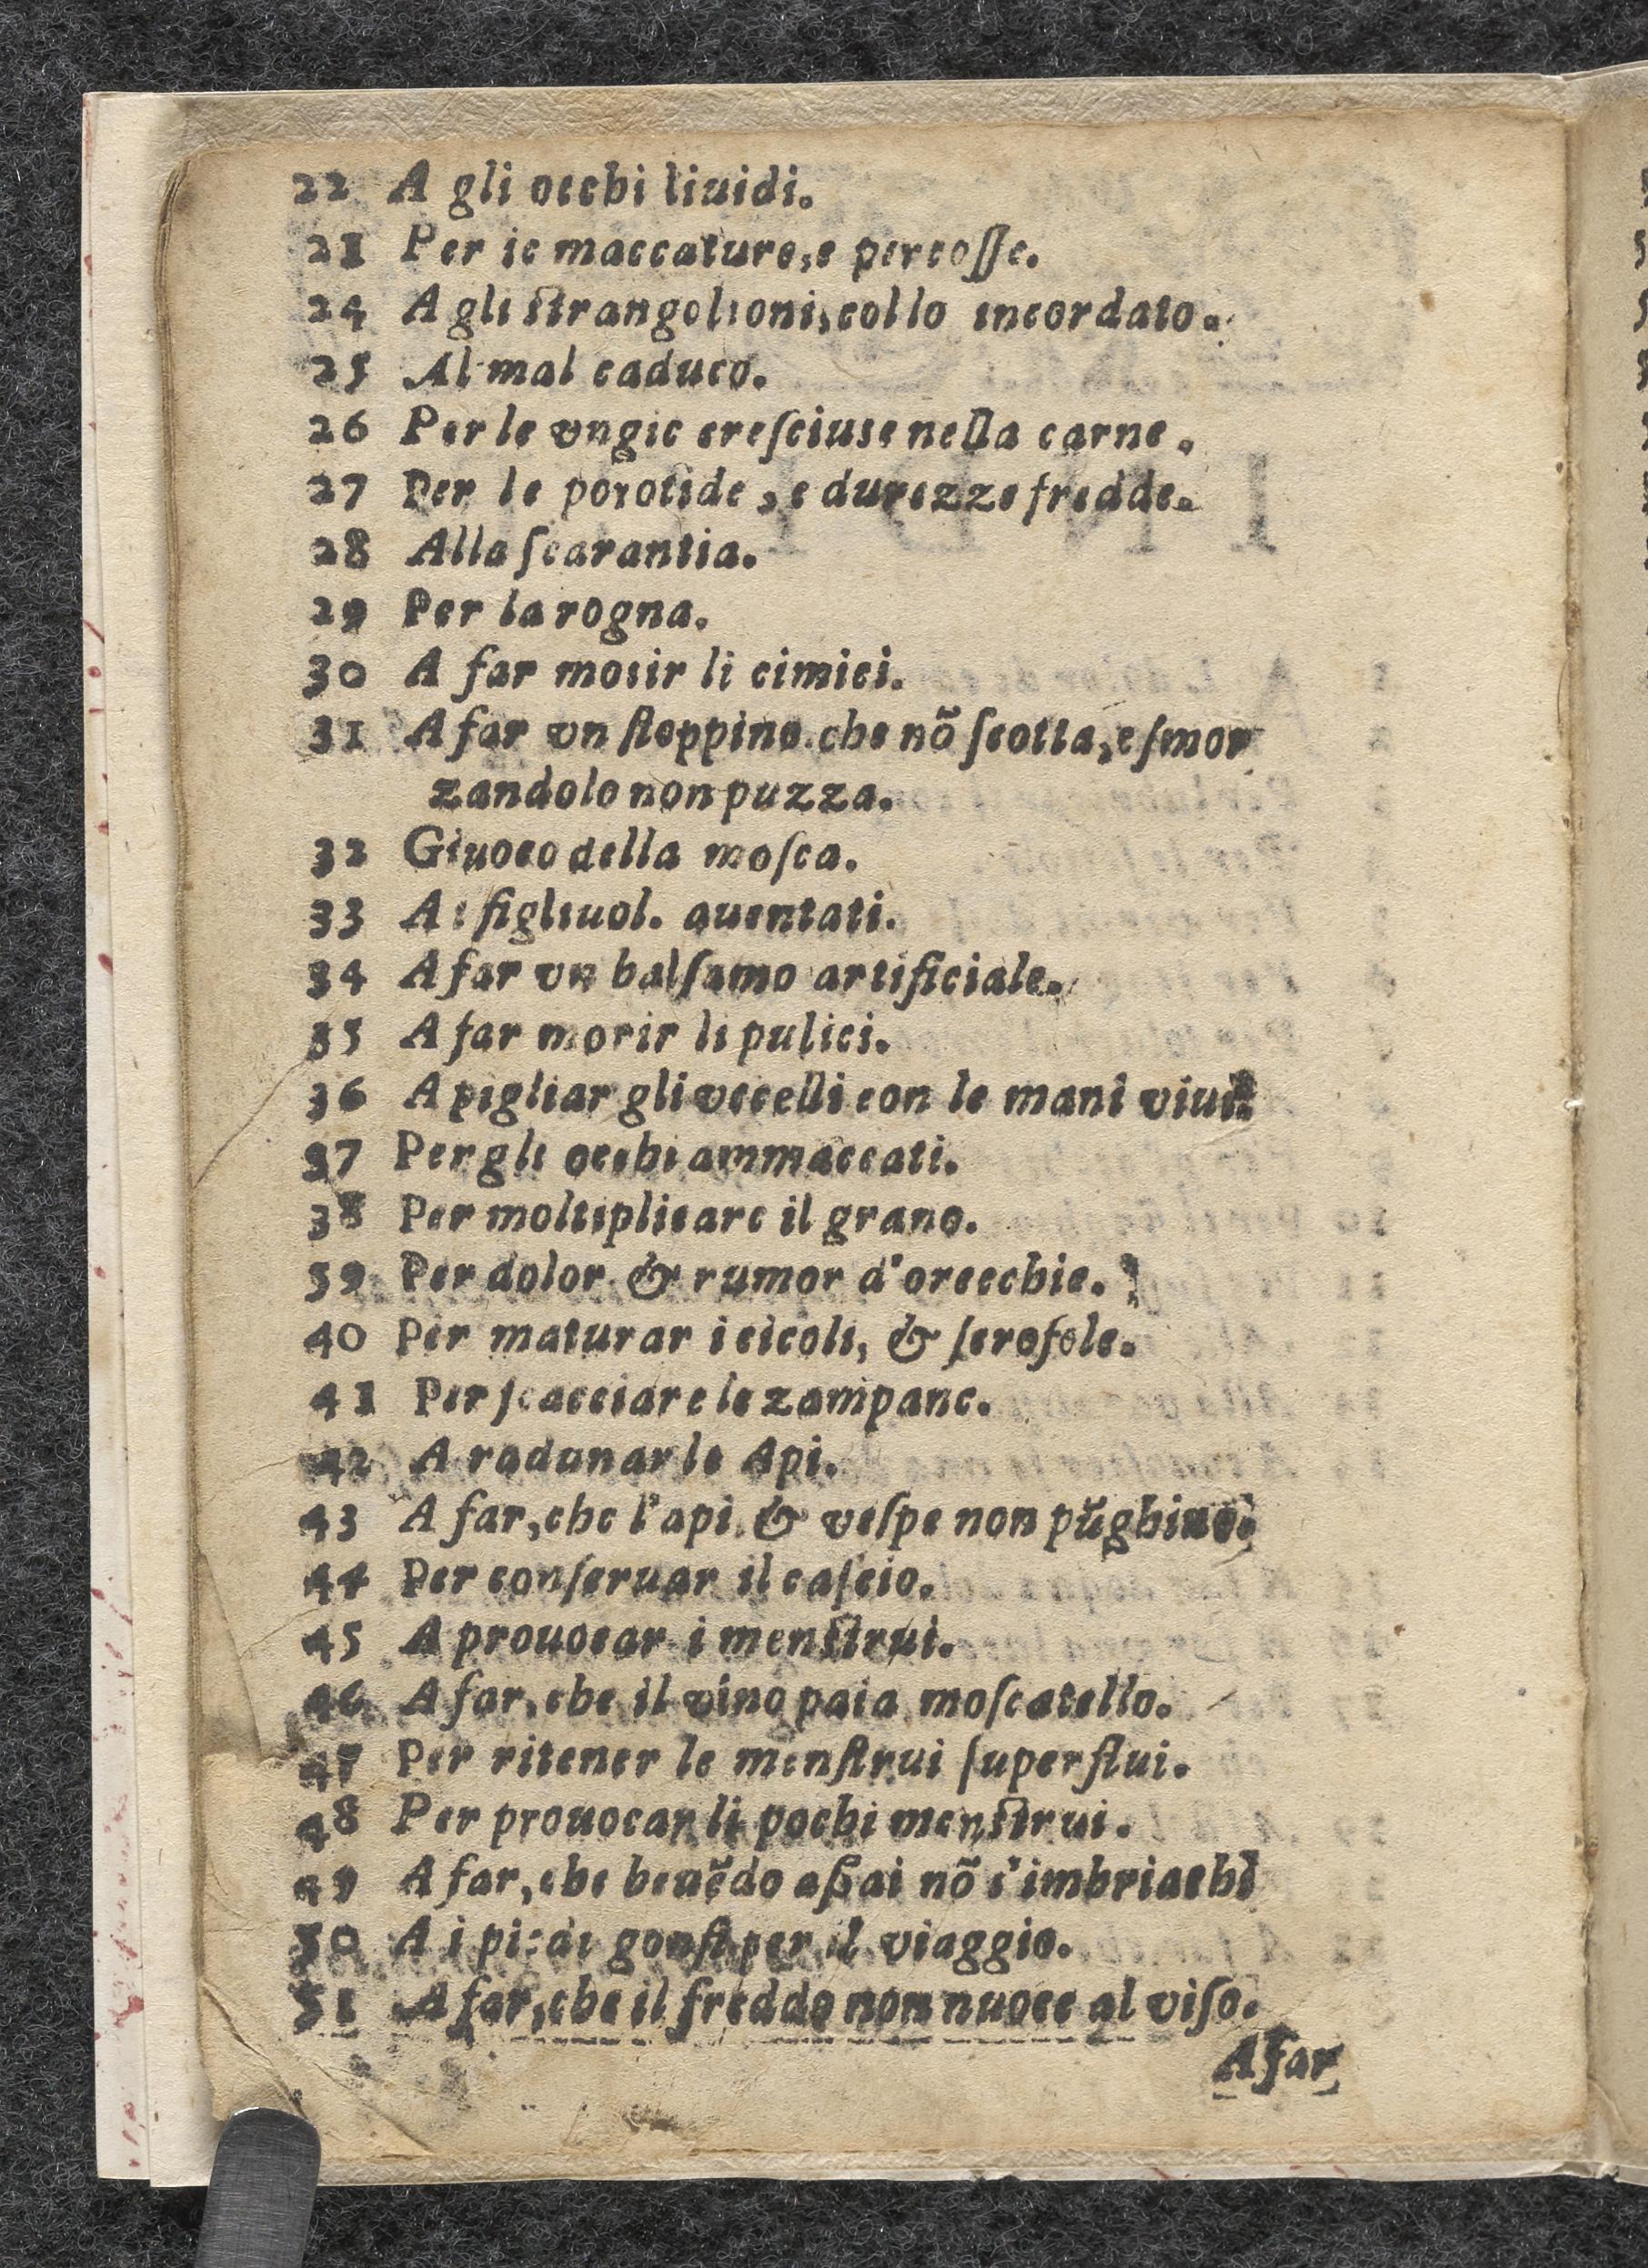 22 A gli occhi liuidi.
21 Per le maccature, e percosse.
24 A gli strangolioni, collo incordato.
25 Al mal caduco.
26 Per le vngie cresciute nella carne.
27 Per le porotide, e durezze fredde.
28 Alla scarantia.
29 Per la rogna.
30 A far morir li cimici.
31 A far vn stoppino che nõ scotta, e smor
zandolo non puzza.
32 Giuoco della mosca.
33 A i figliuol. auentati.
34 A far vn balsamo artificiale.
35 A far morir li pulici.
36 A pigliar gli vccelli con le mani viui.
37 Per gli occhi ammaccati.
38 Per moltiplicare il grano.
39 Per dolor & rumor d'orecchie.
40 Per maturar i cicoli, & scrofole.
41 Per scacciare le zampane.
42 A radunar le Api.
43 A far, che l'api & vespe non pũghino.
44 Per conseruar il cascio.
45 A prouocar i menstrui.
46 A far, che il vino paia moscatello.
47 Per ritener le menstrui superflui.
48 Per prouocar li pochi menstrui.
49 A far, che beuẽdo assai nõ s'imbriachi
50 A i piedi gonfi per il viaggio.
51 A far, che il freddo non nuoce al viso.
A far